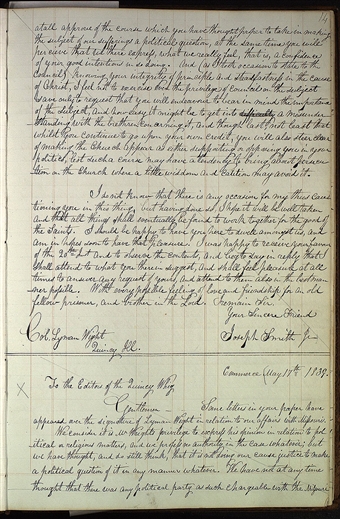 14
at all approve of the course which you have thought proper to take in making
the subject of our sufferings a political question, at the same time you will
perceive that we there express, what we really feel, that is, a confidence
of your good intentions in so doing. And (as I took occasion to state to the
Council) knowing your integrity of principle and steadfastness in the cause
of Christ, I feel not to exercise even the privilege of Council on the subject
save only to request that you will endeavour to bear in mind the importance
of the subject, and how easy it might be to get into a misunder
standing with the brethren concerning it, and though last, not least that
whilst you continue to go upon your own credit, you will also steer clear
of making the Church appear as either supporting or opposing you in your
politics, lest such a course may have a tendency to bring about persecu
tion on the Church where a little wisdom and caution may avoid it.
I do not know that there is any occasion for my thus cau
tioning you in this thing, but having done so I hope it will be well taken
and that all things shall eventually be found to work together for the good of
the Saints. I should be happy to have you here to dwell amongst us, and
am in hopes soon to have that pleasure. I was happy to receive your favour
of the 20th Inst and to observe the contents, and beg to say in reply that I
shall attend to what you therein suggest, and shall feel pleasure at all
times to answer any request of yours, and attend to them also in the best man
ner possible. With every possible feeling of love and friendship for an old
fellow prisoner, and brother in the Lord. I remain Sir,
Your Sincere Friend
Joseph Smith Jr.
Col. Lyman Wight
Quincy Ill.
Commerce May 17th 1839.
To the Editors of the Quincy Whig
Gentlemen Some letters in your paper have
appeared over the signature of Lyman Wight in relation to our affairs with Missouri.
We consider it is Mr Wights privilege to express his opinion in relation to pol
itical or religious matters, and we profess no authority in the case whatever; but
we have thought, and do still think, that it is not doing our cause justice to make
a political question of it in any manner whatever. We have not at any time
thought that there was any political party, as such chargeable with the Missouri